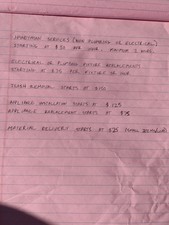 HANDYMAN SERVICES (NON PLUMBING OR ELECTRICAL)
STARTING AT $50 PER HOUR, MINIMUM 2 HOURS
ELECTRICAL OR PLUMBING FIXTURE REPLACEMENT
STARTING AT $75 PER FIXTURE OR HOUR
TRASH REMOVAL STARTS AT $150
APPLIANCE INSTALLATION STARTS AT $125
APPLIANCE REPLACEMENT STARTS AT $75
MATERIAL DELIVERY STARTS AT $25